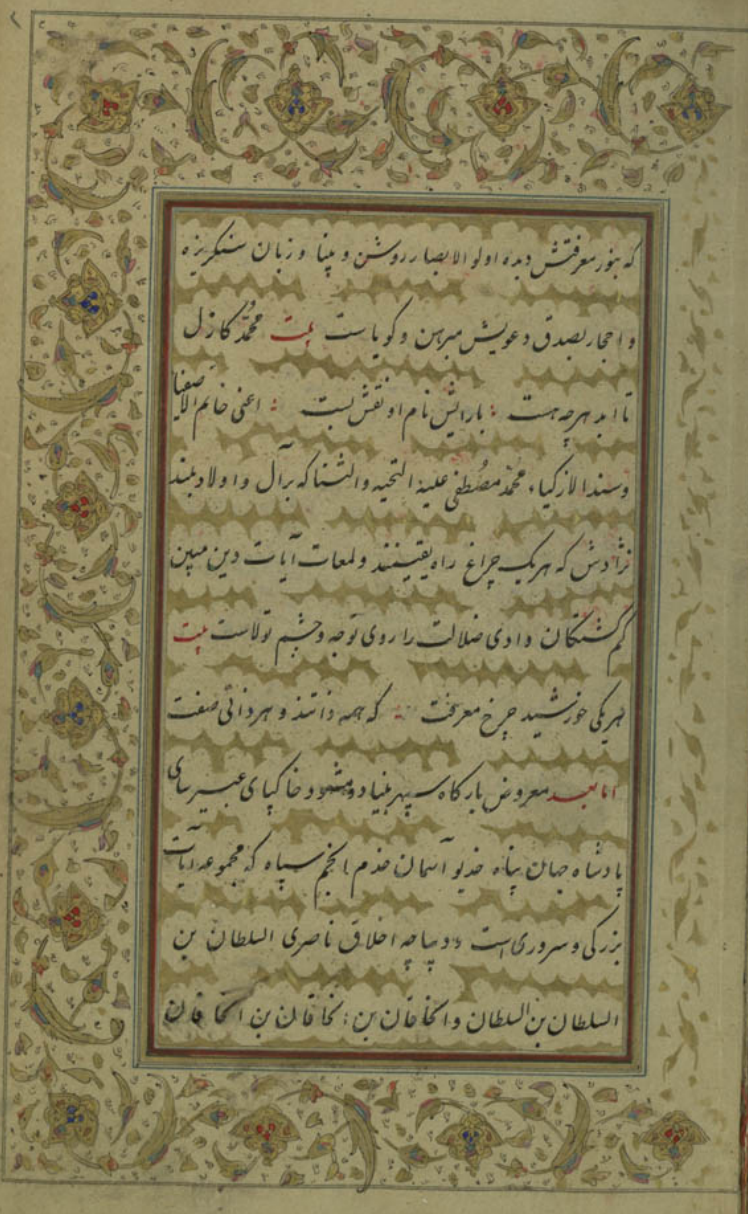 که بنور معرفتش دیده اولو الابصار روشن و بینا و زبان سنگریزه
و احجار بصدق دعویش مبرهن و گویاست بیت محمد کازل
تا ابد هرچه هست بارایش نام او نقش بست اعنی خاتم الاصفیا
و سند الازکیاء محمد مصطفی علیه التحیه والثنا که بر آل و اولاد بلند
نژادش که هریک چراغ راه یقینند و لمعات آیات دین مبین
گم گشتگان وادی ضلالت را روی توجه و چشم تولاست بیت
هریکی خورشید چرخ معرفت که همه ذاتند و هر ذاتی صفت
اما بعد معروض بارگاه سپهر بنیاد و مشهود خاکپای عبیرسای
پادشاه جهان پناه خدیو آسمان خدم انجم سپاه که مجموعه آیات
بزرگی و سروری است و دیباچه اخلاق ناصری السلطان بن
السلطان بن السلطان و الخاقان بن الخاقان بن الخاقان